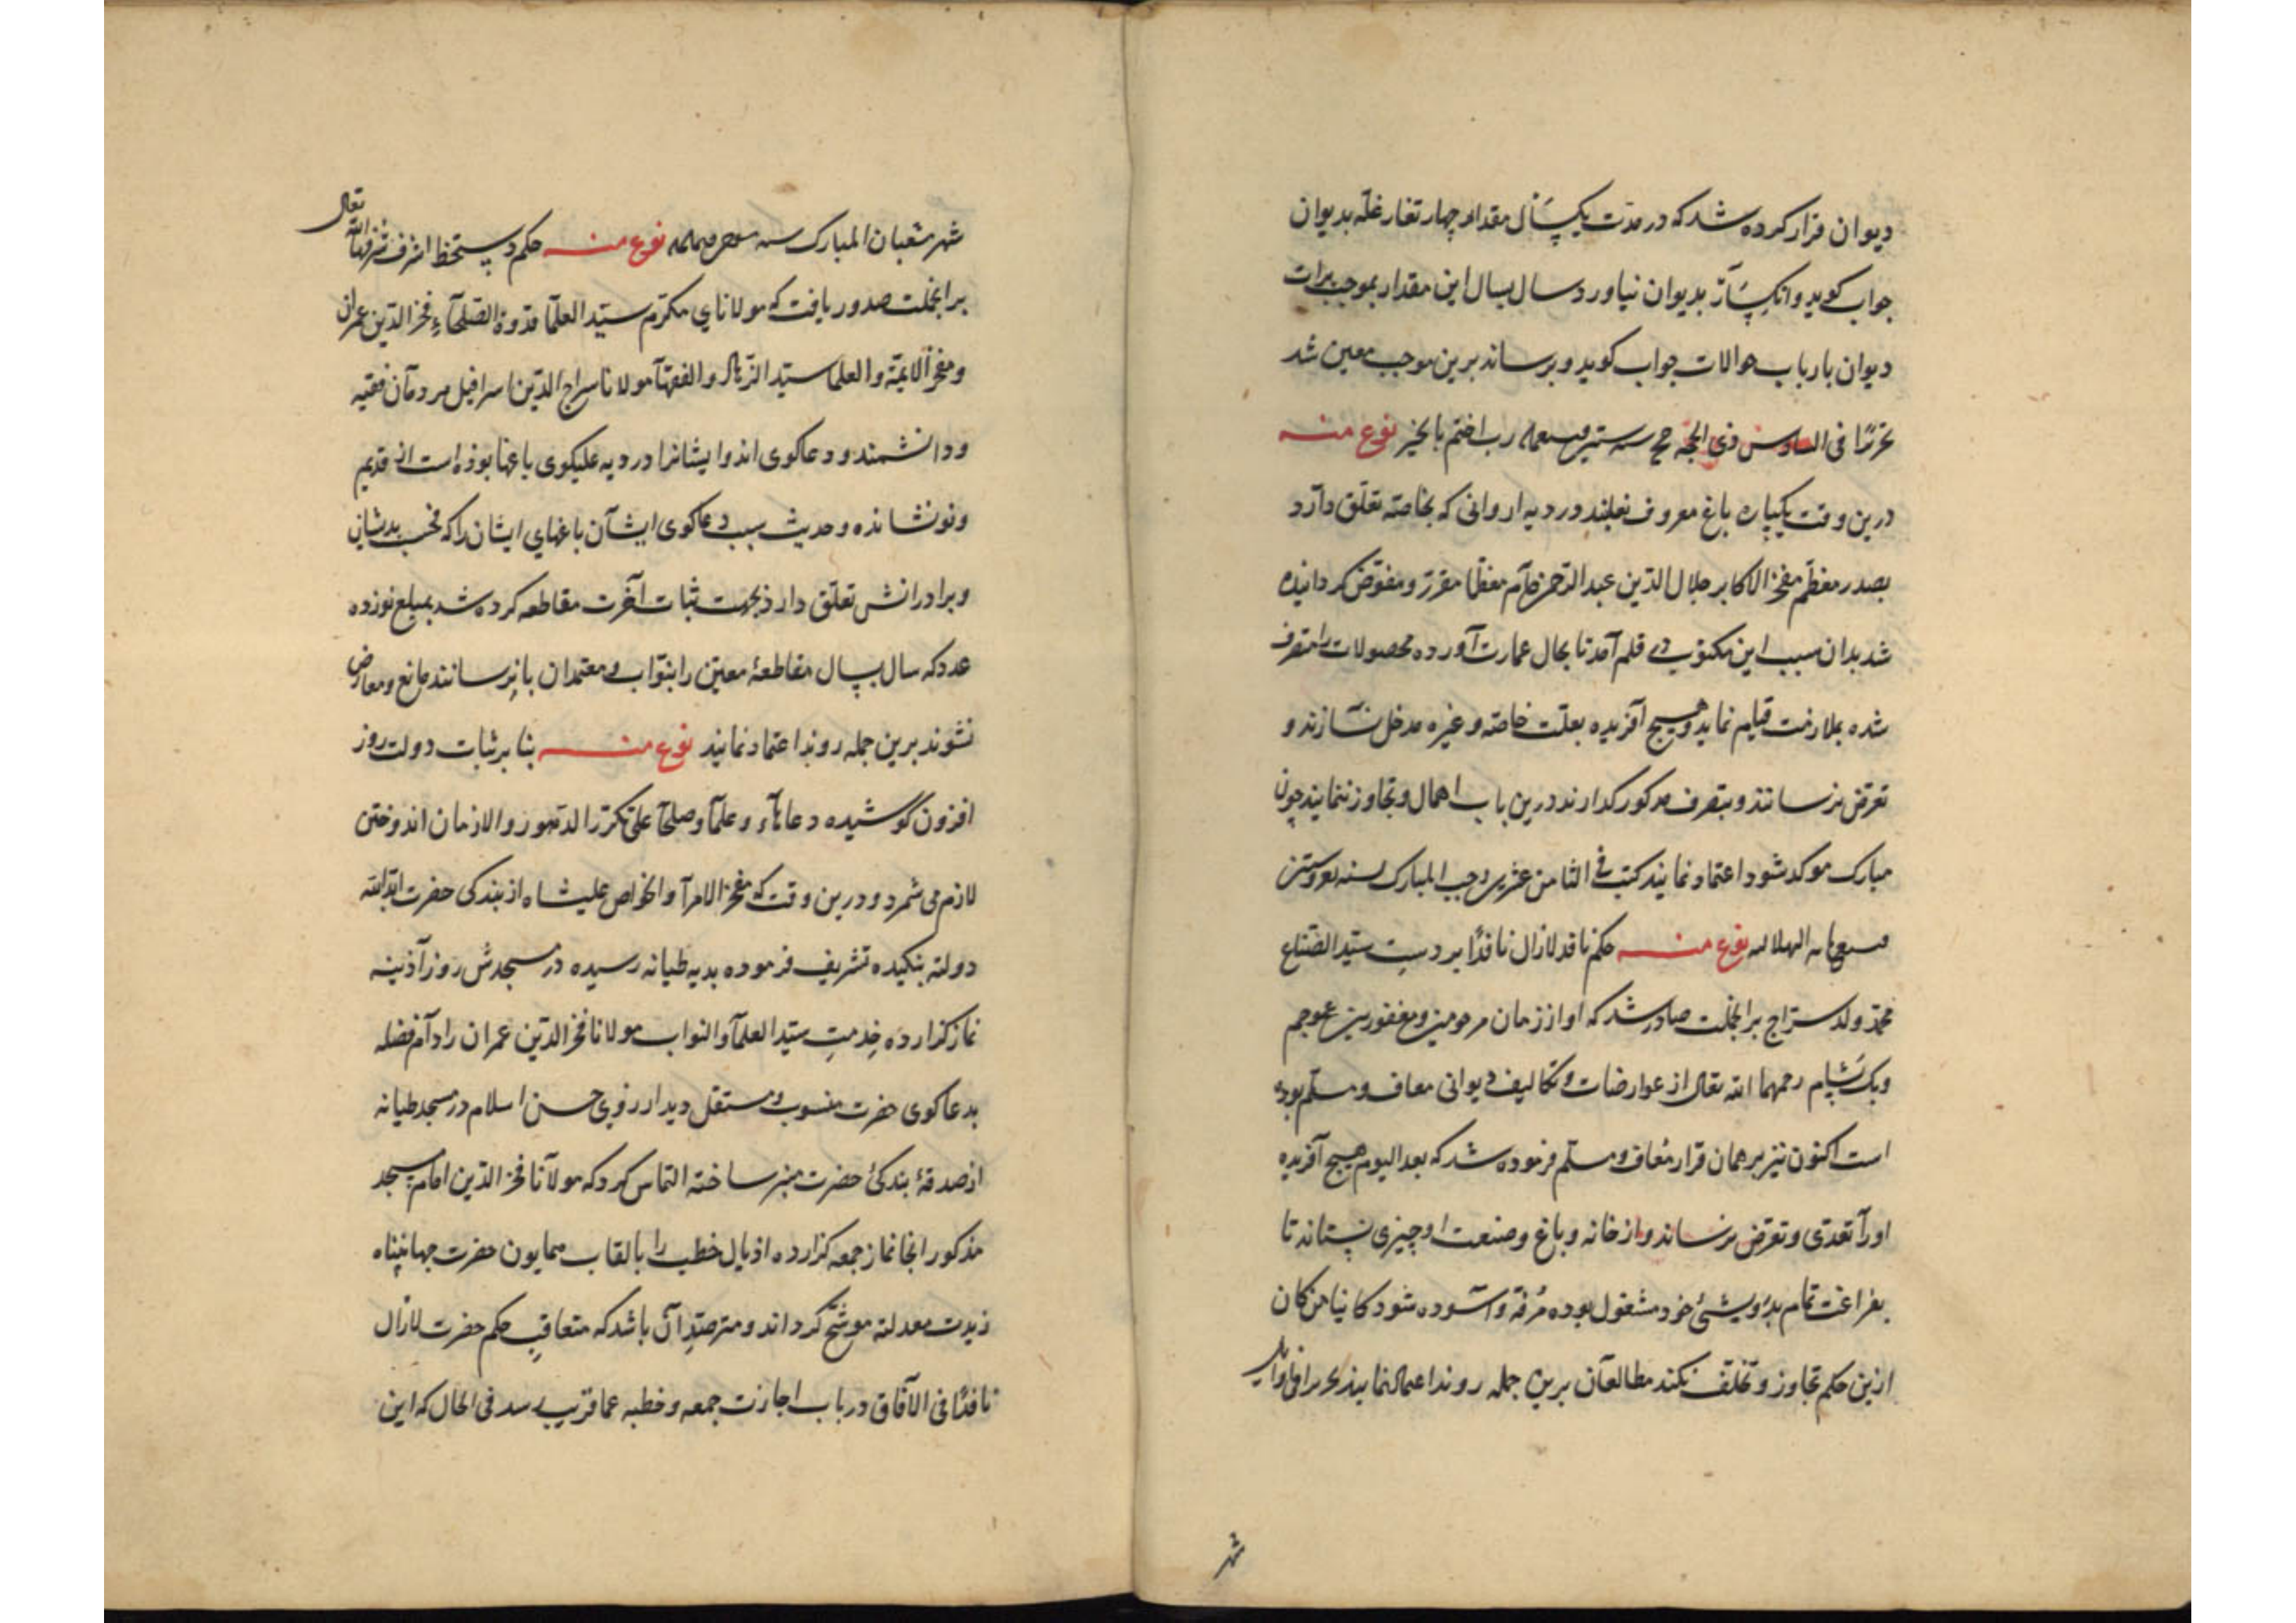 دیوان قرار کرده شد که در مدت یکسال مقدار چهار تغار غله بدیوان
جواب کوید وانکسار بدیوان نیاورد سال بسال این مقدار بموجب برات
دیوان بارباب حوالات جواب کوید و برساند برین موجب معین شد
تحریرا فی السادس ذی الحجه رب اختم بالخیر نوع منه
درین وقت یکپاره باغ معروف در دیه اروانی که بخاصه تعلق دارد
بصدر معظم مفخر الاکابر جلال الدین عبد الرحمن دام معظما مقرر و مفوض کردانیده
شد بدان سبب این مکتوب در قلم آمد تا بحال عمارت آورده محصولات را متصرف
شده بملازمت قیام نماید و هیچ آفریده بعلت خاصه و غیره مدخل نسازند و
تعرض نرسانند و بتصرف مذکور کذارند درین باب اهمال و تجاوز ننمایند چون
مبارک موکد شود اعتماد نمایند کتب فی الثامن عشرین رجب المبارک لسنه
الهلالیه نوع منه حکم نافذ لازال نافذا بر دست سید الصناع
محمد ولد سراج برانجملت صادر شد که او از زمان مرحومین و مغفورین
رحمهما الله تعالی از عوارضات و تکالیف دیوانی معاف و مسلم بوده
است اکنون نیز بر همان قرار معاف و مسلم فرموده شد که بعد الیوم هیچ آفریده
اورا تعدی و تعرض نرساند و از خانه و باغ و صنعت او چیزی نستاند تا
بفراغت تمام بدرویشئ خود مشغول بوده مرفه و آسوده شود کائنا من کان
ازین حکم تجاوز و تخلف نکند مطالعان برین جمله روند اعتماد نمایند تحریرا فی اوایل
شهر
شهر شعبان المبارک سنه نوع منه حکم دستخط اشرف شرفه الله تعالی
برانجملت صدور یافت که مولانای مکرم سید العلما قدوة الصلحاء فخر الدین عمران
و مفخر الایمة و العلما سید الزهاد و الفقها مولانا سراج الدین اسرافیل مردمان فقیه
و دانشمند و دعاکوی اند و ایشانرا در دیه علیکوی باغها بوده است از قدیم
و نو نشانده و حدیث سبب دعاکوی ایشان باغهای ایشان را که
و برادرانش تعلق دارد بجهت ثبات آخرت مقاطعه کرده شد بمبلغ نوزده
عدد که سال بسال مقاطعهٔ معین را بنواب و معتمدان بازرسانند مانع و معارض
نشوند برین جمله روند اعتماد نمایند نوع منه بنا بر ثبات دولت روز
افزون کوشیده دعاهاء و علما و صلحا علی تکرر الدهور و الازمان اندوختن
لازم می شمرد و درین وقت که مفخر الامرا و الخواص علیشاه از بندکی حضرت ابد الله
دولته بنکیده تشریف فرموده بدیه طیانه رسیده در مسجدش روز آذینه
نماز کزارده خدمت سید العلما و النواب مولانا فخر الدین عمران را دام فضله
بدعاکوی حضرت منسوب و مستقل دیدار روی حسن اسلام در مسجد طیانه
از صدقهٔ بندکئ حضرت منبر ساخته التماس کرد که مولانا فخر الدین امام مسجد
مذکور انجا نماز جمعه کزارده اذیال خطبه را بالقاب همایون حضرت جهانپناه
زیدت معدلته موشح کرداند و مترصد آن باشد که متعاقب حکم حضرت لازال
نافذا فی الآفاق در باب اجازت جمعه و خطبه عما قریب رسد فی الحال که این